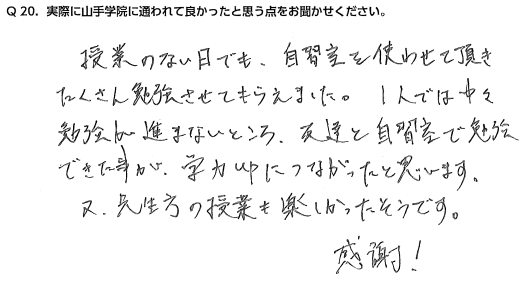 Q 20. 実際に山手学院に通われて良かったと思う点をお聞かせください。
授業のない日でも、自習室を使わせて頂き
たくさん勉強させてもらえました。1人では中々
勉強が進まないところ、友達と自習室で勉強
できた事が、学力UPにつながったと思います。
又、先生方の授業も楽しかったそうです。
感謝!